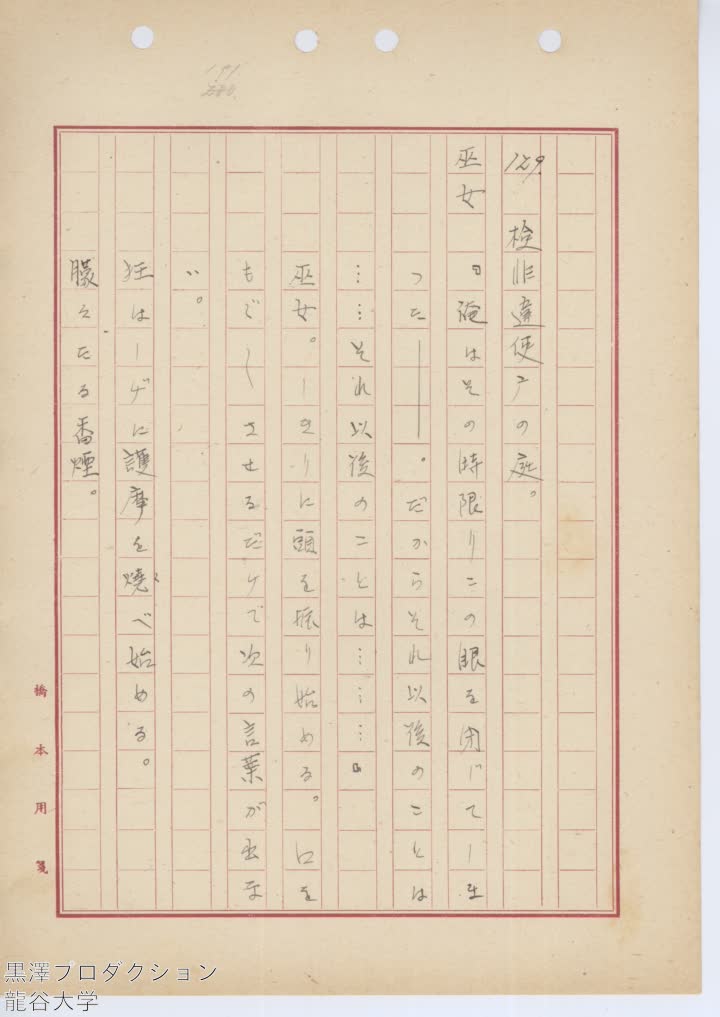 129. 検非違使庁の庭。
巫女『俺はその時限りこの眼を閉じてしま
つた――。だからそれ以後のことは
……それ以後のことは………』
巫女。しきりに頭を振り始める。口を
もぐ〳〵させるだけで次の言葉が出な
い。
狂はしげに護摩を燒べ始める。
朦々たる香煙。
橋本用箋
黒澤プロダクション
龍谷大学